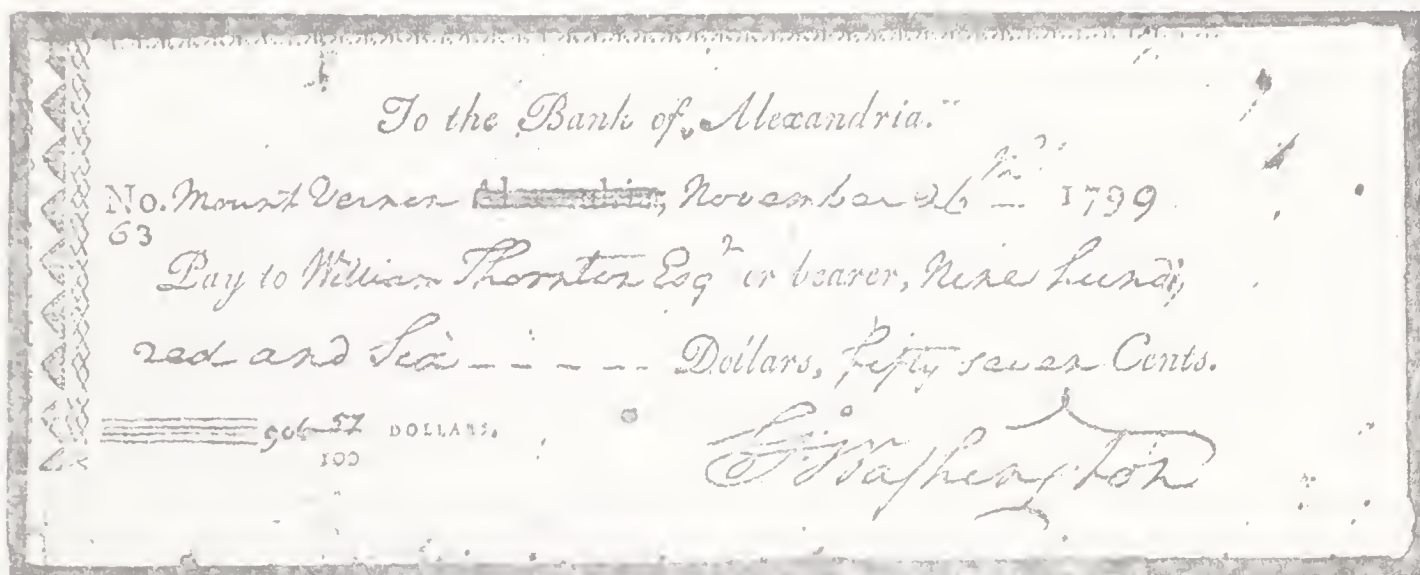 To the Bank of Alexandria.
No. Mount Vernon Alexandria, November 26th 1799
63
Pay to William Thornton Esqr or bearer, Nine hund,
red and Six - - - - - Dollars, fifty seven Cents.
906 57/100 DOLLARS.
G:Washington